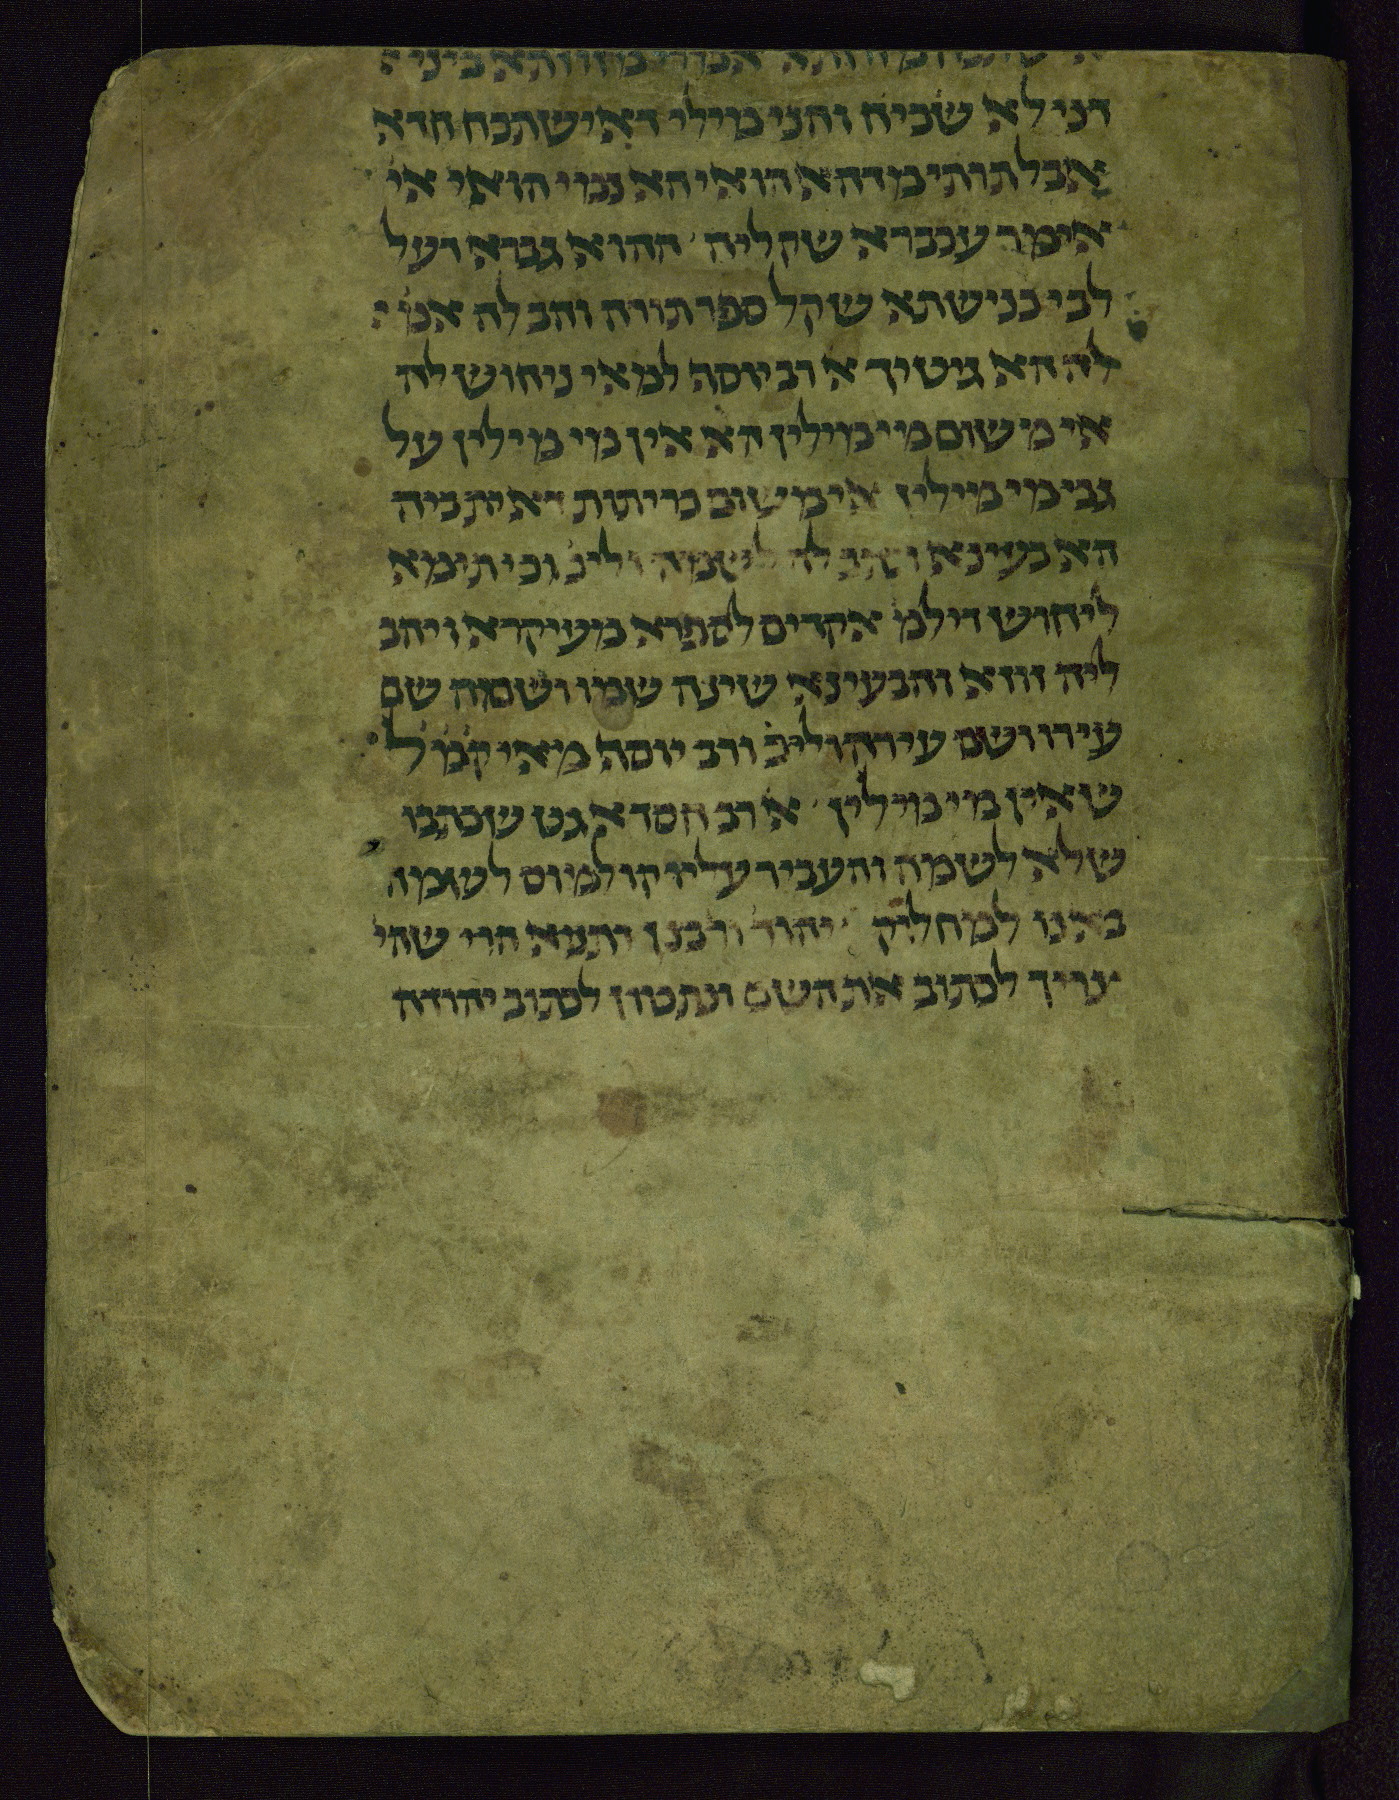 דני לא שכיח והני מילי דאישתכח חדא
אבל תרתי מדהא הואי הא נמי הואי אי
אימר עכברא שקליה ההוא גברא דעל
לבי כנישתא שקל ספר תורה והב לה אמ׳
לה הא גטיך א רב יוסף למאי ניחוש לה
אי משום מי מילין הא אין מי מילין על
גבי מי מילין אי משום כריתות דאית ביה
הא בעינא וכתב לה לשמה וליכ׳ וכי תימא
ליחוש דילמ׳ אקדים לספרא מעיקרא ויהב
ליה זוזא והבעינא שינה שמו ושמה שם
עירו ושם עירה וליכ׳ ורב יוסף מאי ק׳מ׳ל׳
שאין מי מילין א׳ רב חסדא גט שכתבו
שלא לשמה והעביר עליו קולמוס לשמה
באנו למחלוק׳ יהוד׳ ורבנן דתניא הרי שהי׳
צריך לכתוב את השם ונתכוון לכתוב יהודה